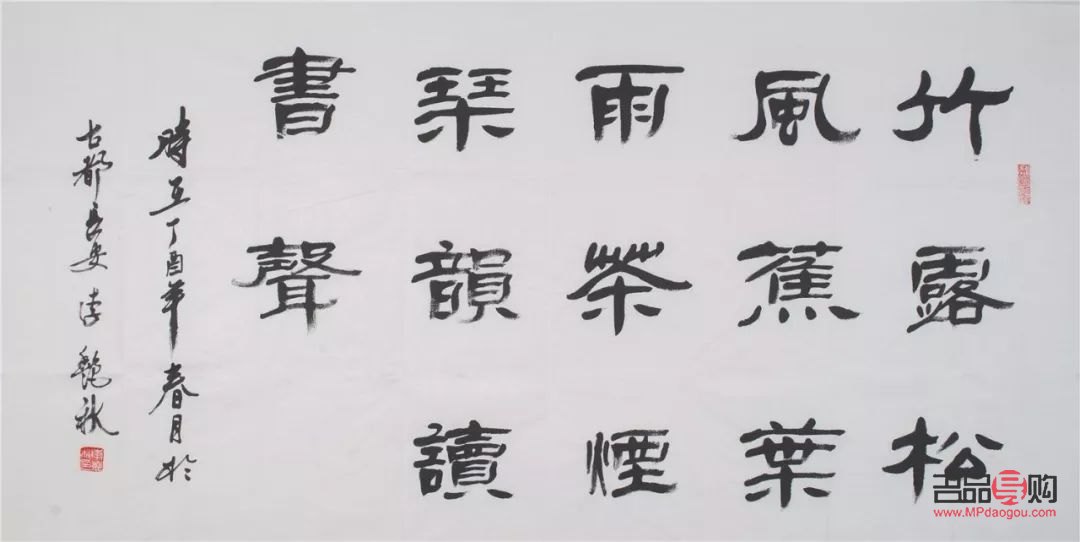 竹露松
風蕉葉
雨茶煙
琹韻讀
書聲
時在丁酉年春月於
古都長安 李艷秋
名品导购
www.MPdaogou.com